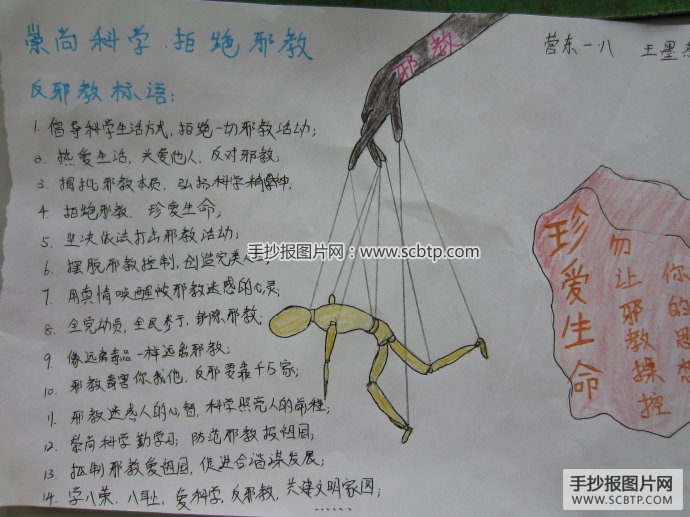 崇尚科学 拒绝邪教
反邪教标语:
1. 倡导科学生活方式，拒绝一切邪教活动；
2. 热爱生活，关爱他人，反对邪教；
3. 揭批邪教本质，弘扬科学精神，
4. 拒绝邪教，珍爱生命，
5. 坚决依法打击邪教活动；
6. 摆脱邪教控制，创造完美人
7. 用真情唤醒被邪教迷惑的心灵；
8. 全党动员，全民参与，铲除邪教；
9. 像远离毒品一样远离邪教；
10. 邪教毒害你我他，反邪要靠千万家；
11. 邪教迷惑人的心智，科学照亮人的前程；
12. 崇尚科学勤学习，防范邪教报祖国；
13. 抵制邪教爱祖国，促进合谐谋发展；
14. 学八荣、八耻，爱科学，反邪教，共建文明家园；
……
邪教
营东一八 王墨
珍爱生命
勿让邪教操控
你的思想
手抄报图片网：www.scbtp.com
手抄报图片网
WWW.SCBTP.COM